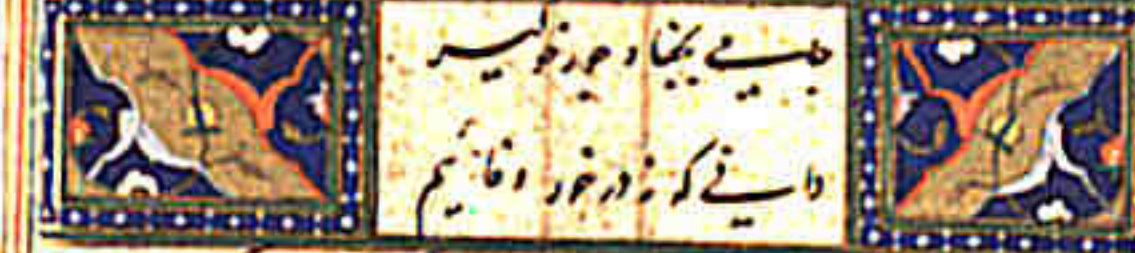 جامی بجفا و جور خو گیر
دانی که نه در خور وفائیم